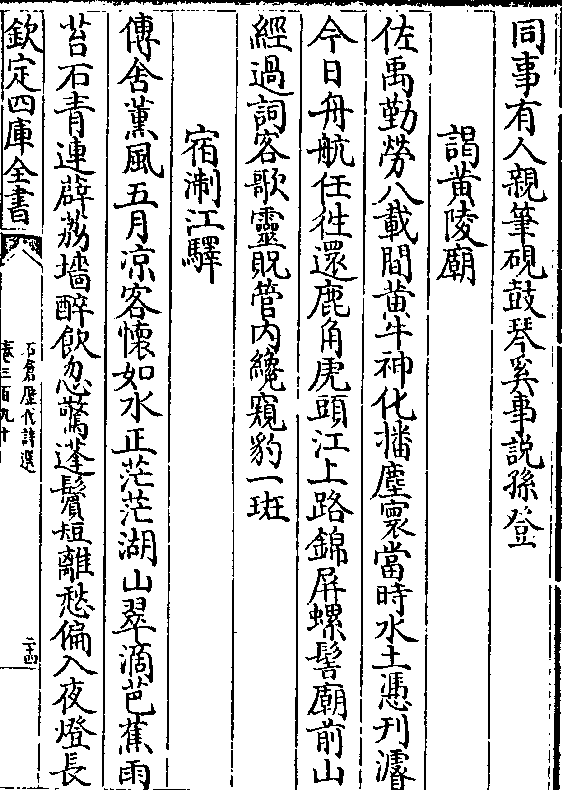 同事有人親筆硯鼓琴奚事説孫登
謁黄陵廟
佐禹勤勞八載間黄牛神化播塵寰當時水土憑刋濬
今日舟航任徃還鹿角虎頭江上路錦屏螺髻廟前山
經過詞客歌靈貺管内纔窺豹一斑
宿淛江驛
傳舍薰風五月凉客懷如水正茫茫湖山翠滴芭蕉雨
苔石青連薜荔墻醉飲忽驚蓬鬢短離愁偏入夜燈長
欽定四庫全書
石倉歷代詩選
卷三百九十
二十四